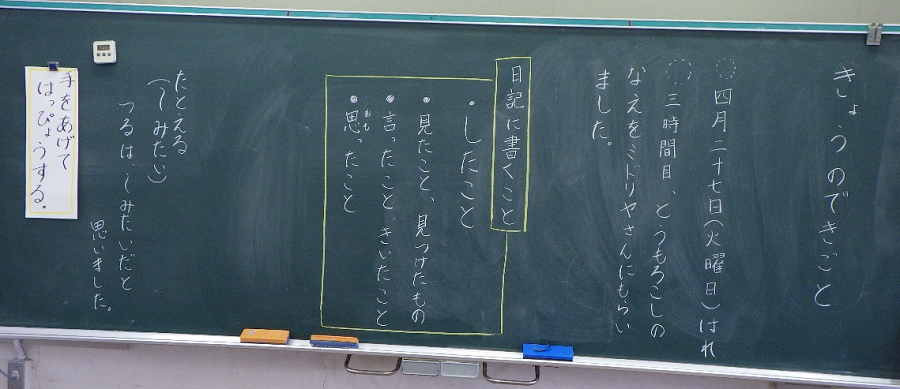 きょうのできごと
四月二十七日(火曜日)はれ
三時間目、とうもろこしの
なえをミドリヤさんにもらい
ました。
日記に書くこと
・したこと
・見たこと、見つけたもの
・言ったこと、きいたこと
・思ったこと
おも
たとえる
(〜みたい)
つるは、〜みたいだと
思いました。
手をあげて
はっぴょうする。